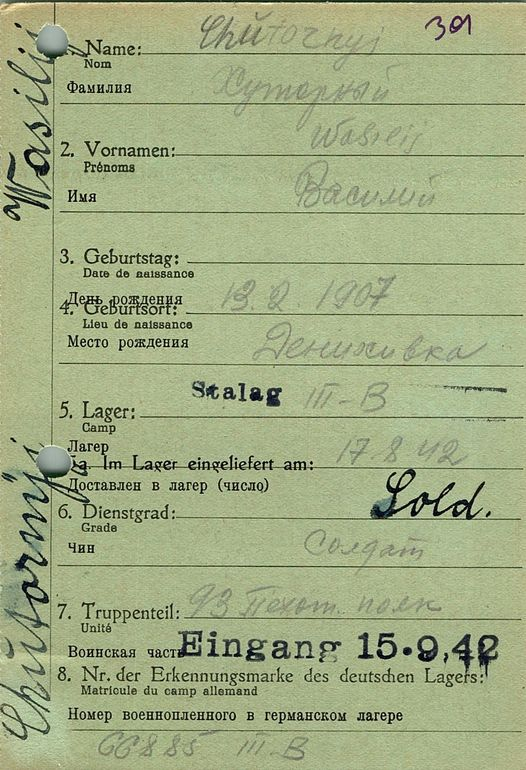 Wasilij Chütornyj
391
1. Name: Chütornyj
Nom
Фамилия Хуторный
Wassij
2. Vornamen:
Prénoms
Имя Василий
3. Geburtstag:
Date de naissance
День рождения 13.2.1907
4. Geburtsort:
Lieu de naissance
Место рождения Денихивка
Stalag III-B
5. Lager:
Camp
Лагер
5a. Im Lager eingeliefert am: 17.8.42
Доставлен в лагер (число)
6. Dienstgrad: Sold.
Grade
Чин Солдат
7. Truppenteil: 93 Пехот. полк
Unité
Воинская часть Eingang 15.9.42
8. Nr. der Erkennungsmarke des deutschen Lagers:
Matricule du camp allemand
Номер военнопленного в германском лагере
66885 III-B